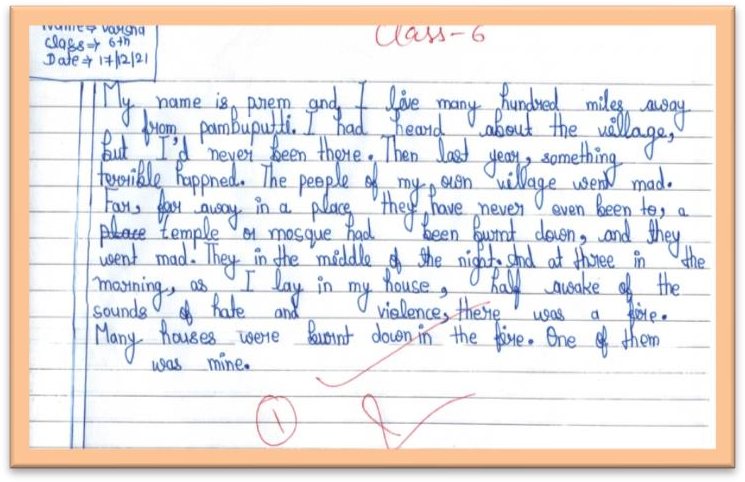 Name⇒ Varsha
Class⇒ 6th
Date⇒ 17/12/21
Class-6
My name is prem and I live many hundred miles away
from pambuputti. I had heard about the village,
but I'd never been there. Then last year, something
terrible happned. The people of my own village went mad.
Far, far away in a place they have never even been to, a
place temple or mosque had been burnt down, and they
went mad. They in the middle of the night. And at three in the
morning, as I lay in my house, half awake of the
sounds of hate and violence, there was a fire.
Many houses were burnt down in the fire. One of them
was mine.
1